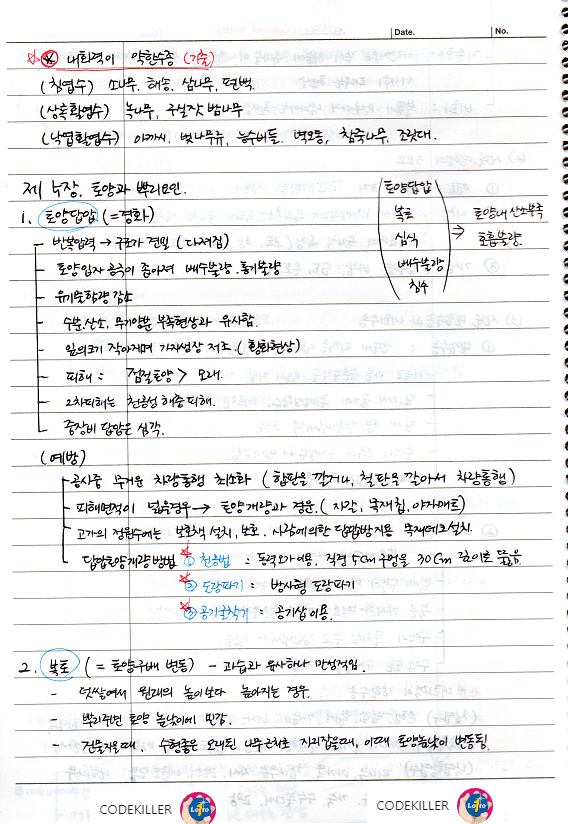 Date.
No.
※ 내화력이 약한수종 (기출)
(침엽수) 소나무, 해송, 삼나무, 편백.
(상록활엽수) 녹나무, 구실잣밤나무
(낙엽활엽수) 아까시, 벚나무류, 능수버들, 벽오동, 참죽나무, 조릿대.
제 4장. 토양과 뿌리요인.
1. 토양답압 (= 경화)
- 반복압력 → 구조가 견밀 (다져짐)
- 토양입자 공극이 좁아져 배수불량. 통기불량
- 유기물함량 감소
- 수분, 산소, 무기양분 부족현상과 유사함.
- 잎의크기 작아지며 가지생장 저조. (황화현상)
- 피해 : 점질토양 > 모래.
- 2차피해는 천공성 해충 피해.
- 중장비 답압은 심각.
토양답압
복토
심식
배수불량
침수
⇒ 토양내 산소부족
호흡불량.
(예방)
- 공사중 무거운 차량통행 최소화 (합판을 깔거나, 철판을 깔아서 차량통행)
- 피해면적이 넓을경우 → 토양개량과 경운. (자갈, 목재칩, 야자매트)
- 고가의 정원수에는 보호책 설치, 보호. 사람에의한 답압방지용 목재데크설치.
- 답압토양개량방법 ① 천공법 : 동력오가이용. 직경 5Cm 구멍을 30Cm 깊이로 뚫음
② 도랑파기 : 방사형 도랑파기
③ 공기굴착기 : 공기삽이용.
2. 복토 (= 토양구배 변동) - 과습과 유사하나 만성적임.
- 덧쌓여서 원래의 높이보다 높아지는 경우.
- 뿌리주변 토양 높낮이에 민감.
- 건물지을때, 수형좋은 오래된 나무근처로 자리잡을때, 이때 토양높낮이 변동됨.
CODEKILLER
Lotto
CODEKILLER
Lotto